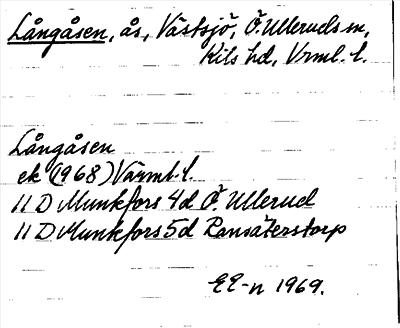 Långåsen, ås, Västsjö, Ö. Ulleruds sn,
Kils hd, Vrml. l.
Långåsen
ek (1968) Värml. l.
11 D Munkfors 4d Ö. Ullerud
11 D Munkfors 5d Ransäterstorp
EE-n 1969.